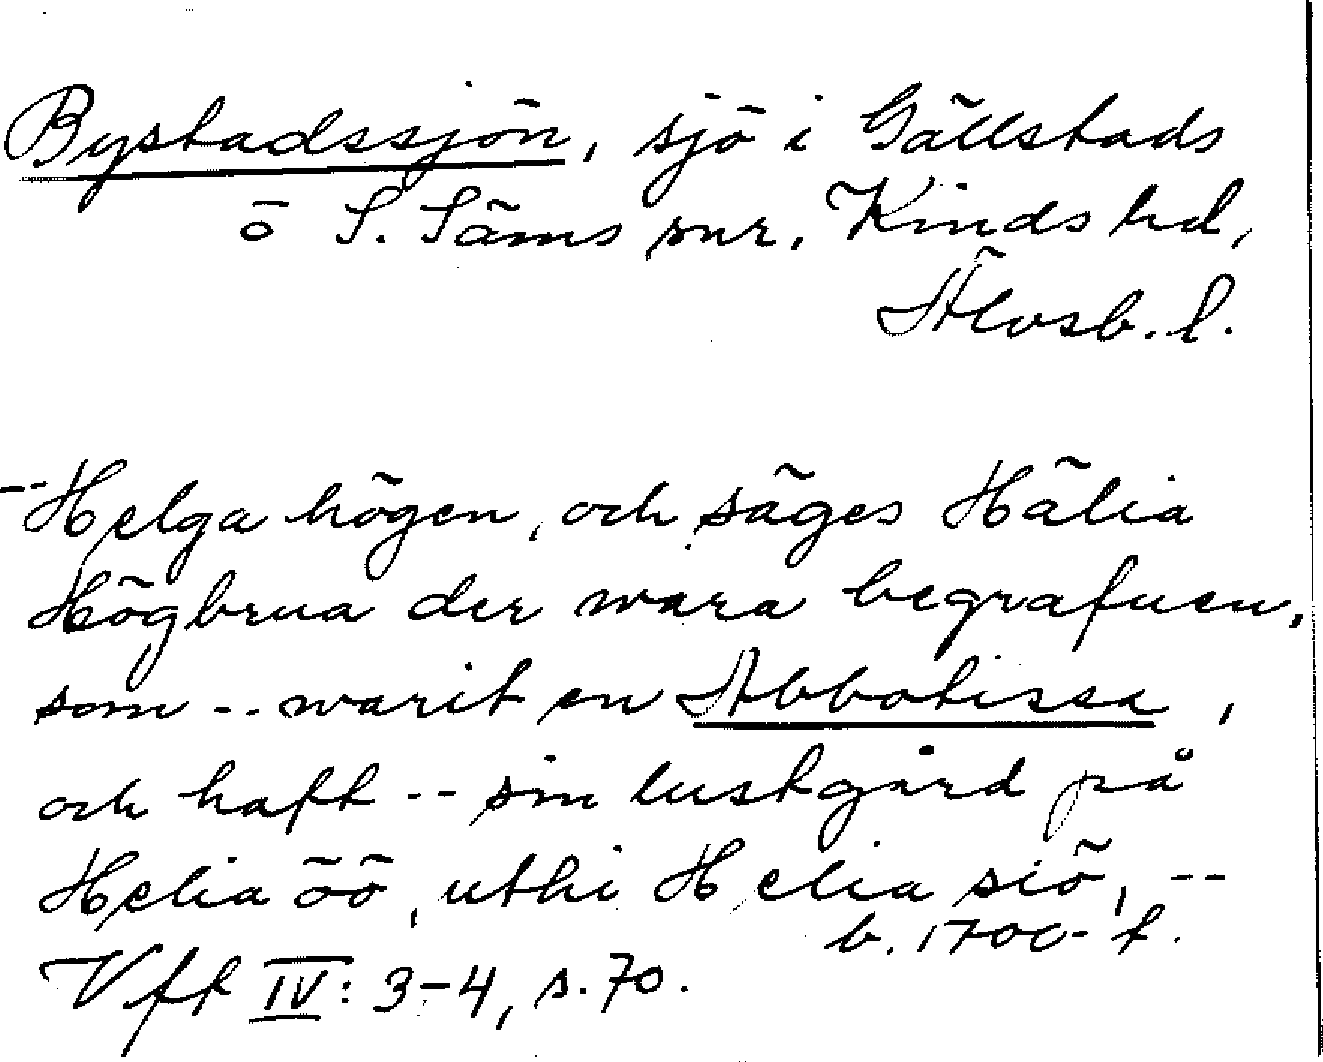 Bystadssjön, sjö i Gällstads
o S. Säms snr, Kinds hd,
Älvsb. l.
-- Helga högen, och säges Hälia
Högbrua der wara begrafuen,
som -- warit en Abbotissa,
och haft -- sin lustgård på
Helia öö, uthi Helia siö, --
b. 1700-t.
Vft IV: 3-4, s. 70.